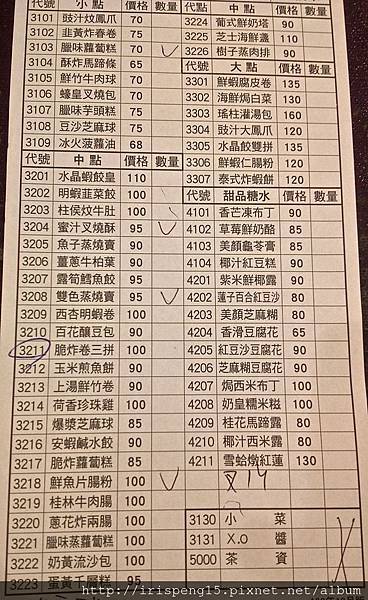 代號 小點 價格 數量
3101 豉汁炆鳳爪 70
3102 韭黃炸春卷 75
3103 臘味蘿蔔糕 70
3104 酥炸馬蹄條 65
3105 鮮竹牛肉球 70
3106 蠔皇叉燒包 70
3107 臘味芋頭糕 75
3108 豆沙芝麻球 75
3109 冰火菠蘿油 68
代號 中點 價格 數量
3201 水晶蝦餃皇 110
3202 明蝦韮菜餃 100
3203 柱侯炆牛肚 100
3204 蜜汁叉燒酥 95
3205 魚子蒸燒賣 90
3206 薑蔥牛柏葉 90
3207 露筍鱈魚餃 95
3208 雙色蒸燒賣 95
3209 西杏明蝦卷 100
3210 百花釀豆包 90
3211 脆炸卷三拼 100
3212 玉米煎魚餅 90
3213 上湯鮮竹卷 90
3214 荷香珍珠雞 100
3215 爆漿芝麻球 85
3216 安蝦鹹水餃 90
3217 脆炸蘿蔔糕 85
3218 鮮魚片腸粉 100
3219 桂林牛肉腸 100
3220 蔥花炸兩腸 100
3221 臘味蒸蘿蔔糕 100
3222 奶黃流沙包 100
3223 蛋黃千層糕 95
3224 葡式鮮奶塔 90
3225 芝士海鮮盞 110
3226 樹子蒸肉排 90
代號 大點 價格 數量
3301 鮮蝦腐皮卷 135
3302 海鮮焗白菜 130
3303 瑤柱灌湯包 160
3304 豉汁大鳳爪 120
3305 水晶餃雙拼 135
3306 鮮蝦仁腸粉 120
3307 泰式炸蝦餅 120
代號 甜品糖水 價格 數量
4101 香芒凍布丁 90
4102 草莓鮮奶酪 85
4103 美顏龜苓膏 85
4104 椰汁紅豆糕 90
4201 紫米鮮椰露 90
4202 蓮子百合紅豆沙 80
4203 美顏芝麻糊 80
4204 香滑豆腐花 65
4205 紅豆沙豆腐花 90
4206 芝麻糊豆腐花 90
4207 焗西米布丁 100
4208 奶皇糯米糍 100
4209 桂花馬蹄露 80
4210 椰汁西米露 80
4211 雪蛤燉紅蓮 130
3130 小菜
3131 X.O 醬
5000 茶資
http://irispeng15.pixnet.net/album